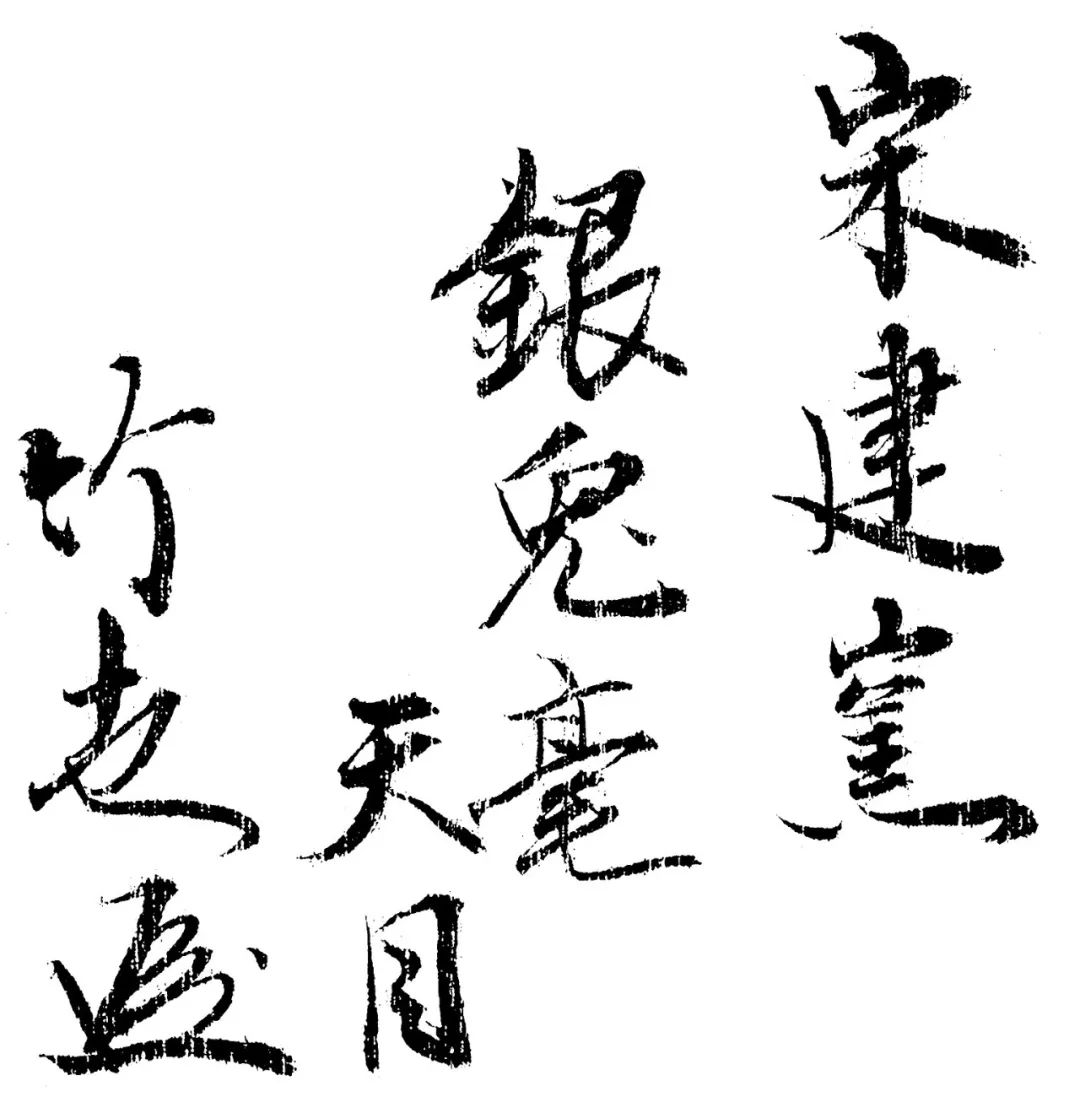 宋建窯
銀兔毫
天目
竹